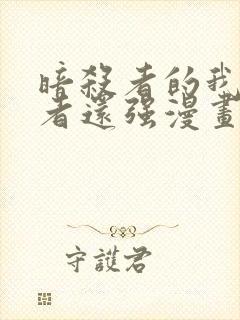 暗殺者的我
者還强漫畫
守護君